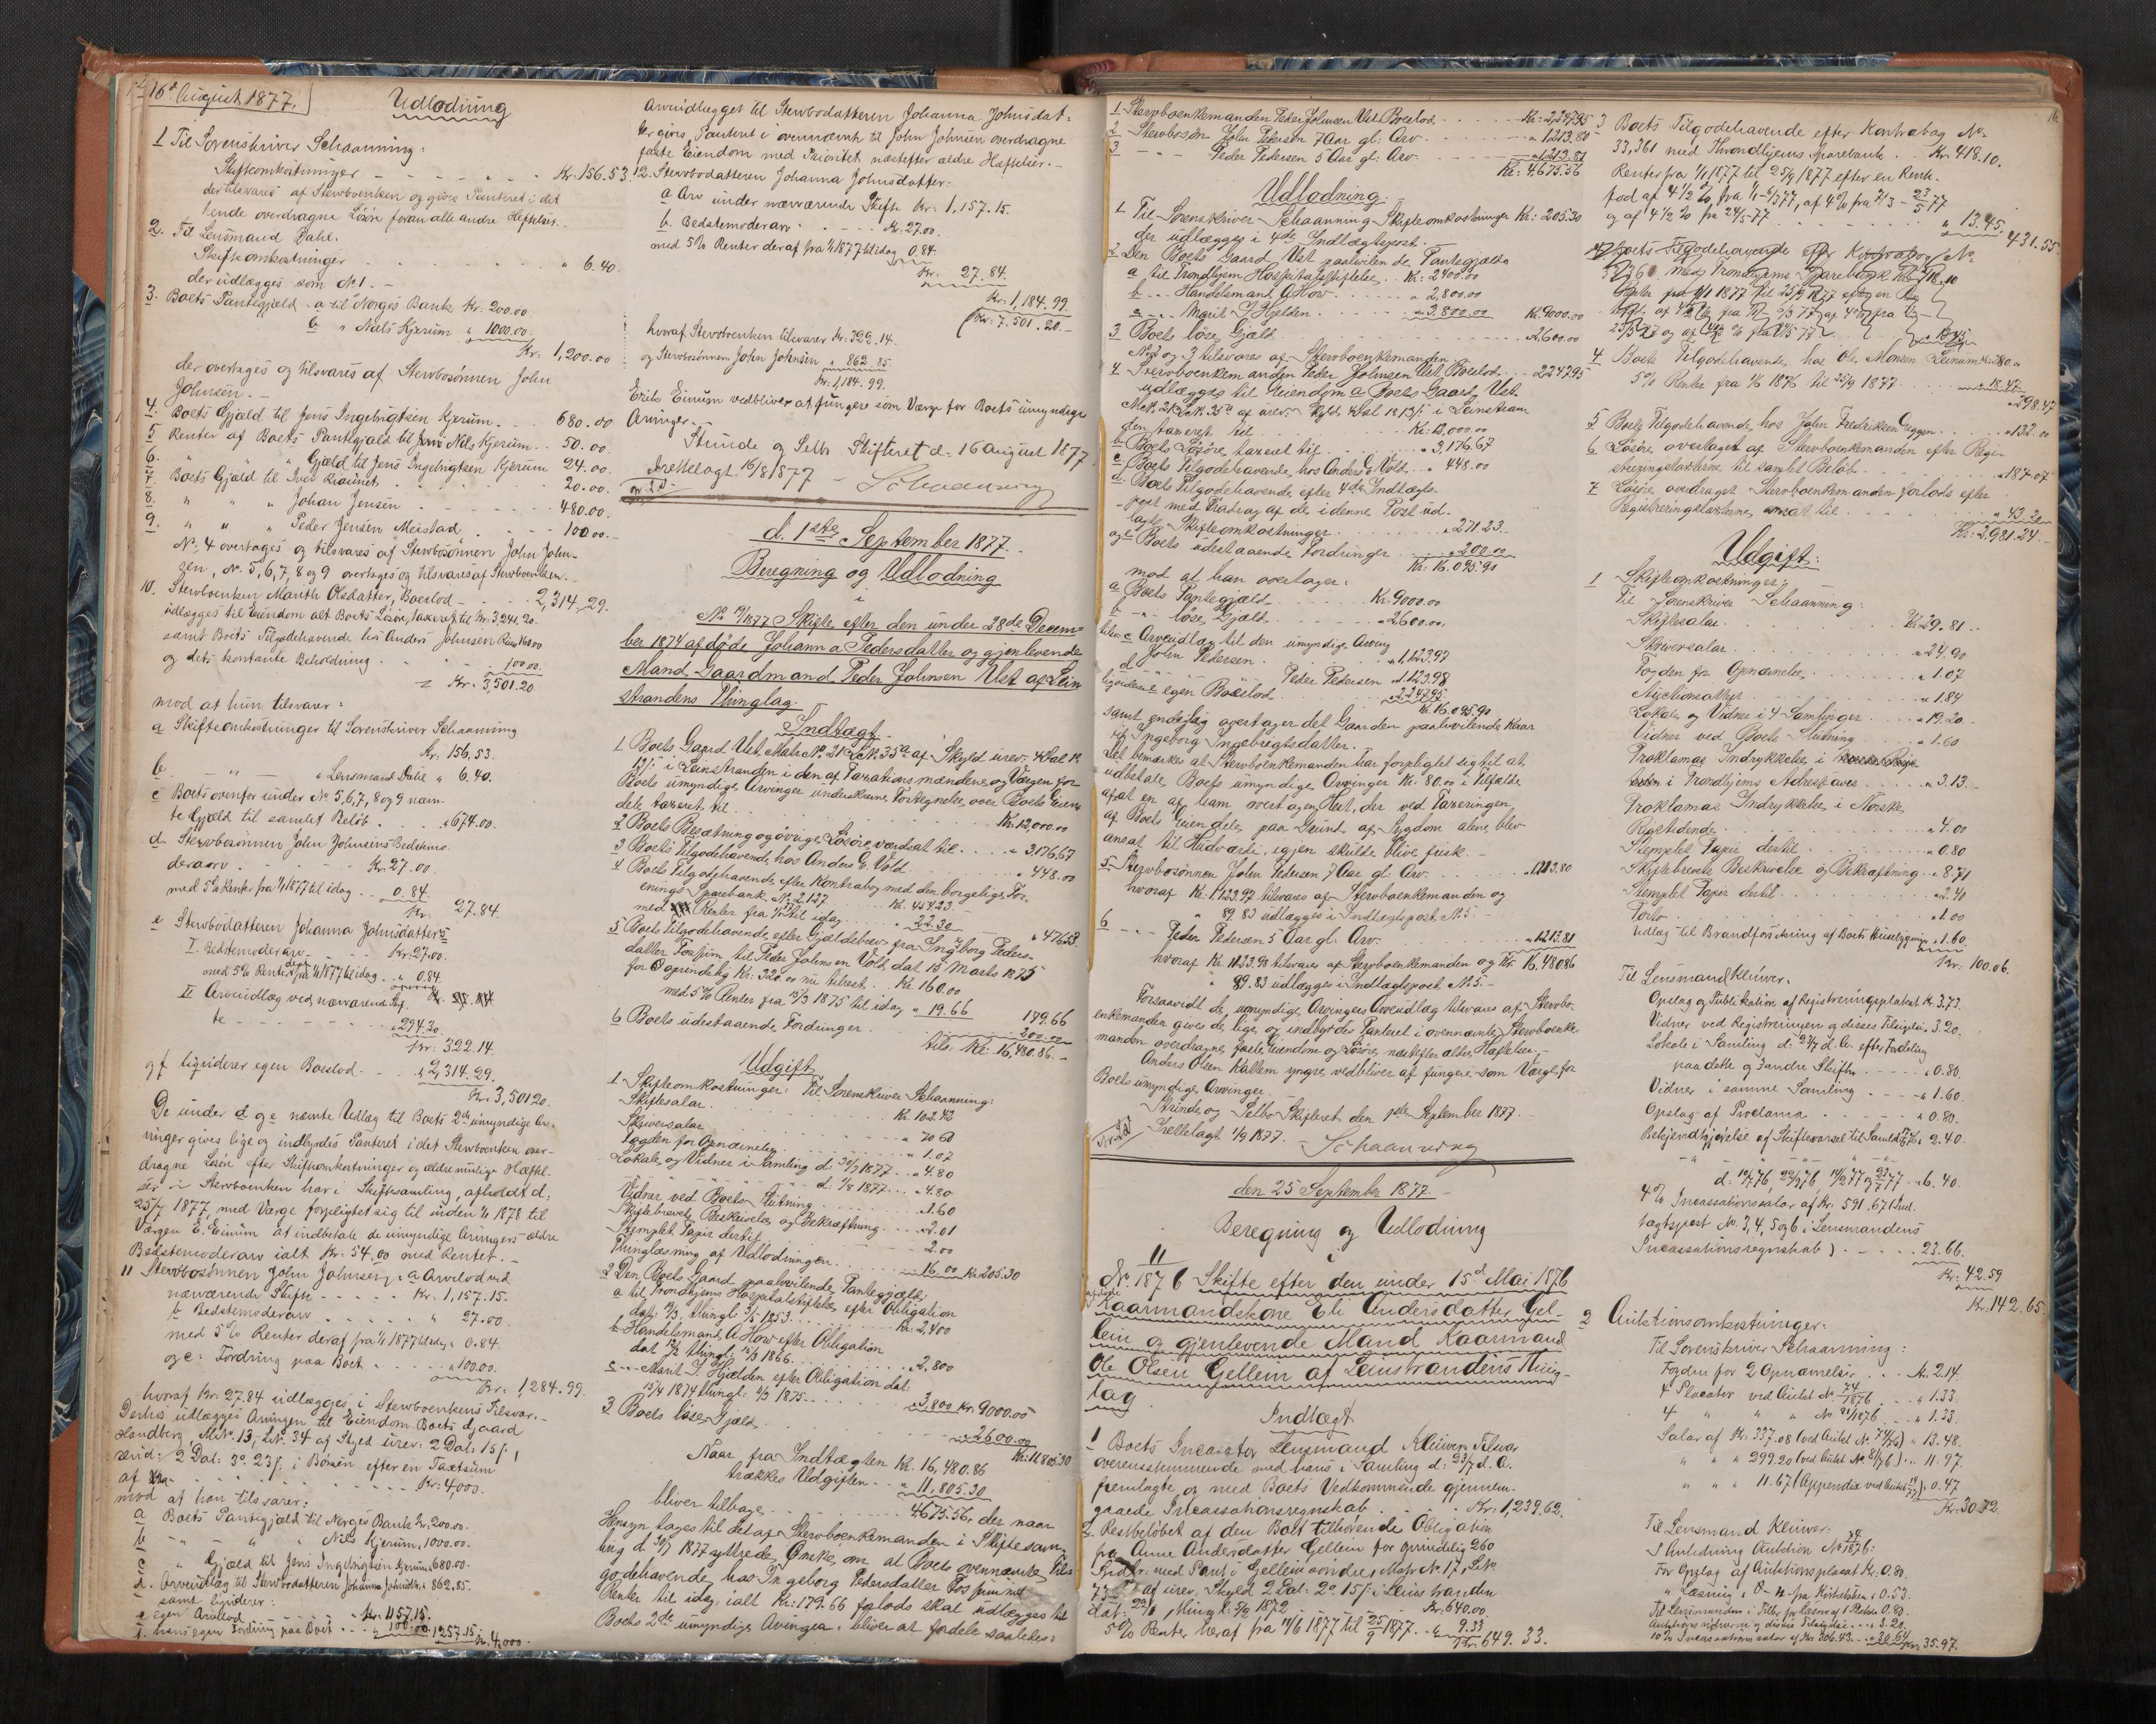 16d August 1877.
Udlodning
1 Til Sorenskriver Schaanning:
Skifteomkostninger Kr. 156.53.
der tilsvares af Stervboenken og gives Panteret i det
hende overdragne Lösöre foran alle andre Heftelser.
2. Til Lensmand Dahl.
Skifteomkostninger " 6.40.
der udlægges som No 1.
3. Boets Pantegjæld a til Norges Bank Kr. 200.00.
b " Niels Kjerum " 1000.00.
Kr. 1,200.00
der overtages og tilsvares af Stervbosönnen John
Johnsen.
4. Boets Gjæld til Jens Ingebrigtsen Kjerum. 680.00
5 Renter af Boets Pantegjæld til Nils Kjerum 50.00.
6. " " Gjæld til Jens Ingebrigtsen Kjerum 24.00.
7. Boets Gjæld til Iver 20.00.
8. " " " Johan Jensen 480.00.
9. " " " Peder Jensen Meistad 100.00.
No 4 overtages og tilsvares af Stervbosönnen John John-
sen, No. 5, 6, 7, 8 og 9 overtages og tilsvares af Stervboenken.
10. Stervboenken Marith Olsdatter, Boeslod 2,314.29.
udlægges til Eiendom alt Boets Lösöre, taxeret til Kr. 3,241.20.
samt Boets Tilgodehavende hos Anders Johnsen 160.00
og dets kontante Beholdning 100.00.
Kr. 3,501.20
mod at hun tilsvarer:
a Skifteomkostninger til Sorenskriver Schaanning
Kr. 156,53.
b " " Lensmand Dahl " 6.40.
c Boets ovenfor under No 5, 6, 7, 8 og 9 nævn-
te Gjæld til samlet Belöb " 674.00.
d. Stervbosönnen John Johnsens Bedstemo-
derarv Kr. 27.00.
med 5% Renter fra 1/1 1877 til idag 0.84.
Kr. 27.84.
e Stervbodatteren Johanna Johnsdatters
I. Bedstemoderarv Kr. 27.00.
med 5% Renter deraf fra 1/1 1877 til idag " 0.84.
II Arveudlæg ved nærværende Skif-
te " 294.30.
Kr. 322.14.
og f liqviderer egen Boeslod " 2,314.29.
Kr. 3,501.20.
De under d og e nævnte Udlæg til Boets 2de umyndige Ar-
vinger gives lige og indbyrdes Panteret i det Stervboenken over-
dragne Lösöre efter Skifteomkostninger og ældre mulige Hæftel-
ser. Stervboenken har i Skiftesamling, afholdt d:
25/7 1877, med Værge forpligtet sig til inden 1/1 1878 til
Værgen E. Einum at indbetale de umyndige Arvingers ældre
Bedstemoderarv ialt Kr. 54,00 med Renter.
11 Stervbosönnen John Johnsen: a Arvelod ved
nærværende Skifte Kr. 1,157.15.
b Bedstemoderarv " 27.00.
med 5% Renter deraf fra 1/1 1877 til idag " 0.84.
og c: Fordring paa Boet " 100.00.
Kr. 1,284.99.
hvoraf Kr. 27.84 udlægges i Stervboenkens Tilsvar.
Derhos udlægges Arvingen til Eiendom Boets Gaard
Landberg, M.No. 13, L.No. 34 af Skyld urev: 2 Dal: 15 s.,
revid: 2 Dal: 3o 23 s. i Börsen efter en Taxtsum
af Kr. 4,000.
mod at han tilsvarer:
a Boets Pantegjæld til Norges Bank Kr. 200.00.
b " " " Niels Kjerum " 1000.00.
c " Gjæld til Jens Ingebrigtsen Kjerum " 680.00.
d. Arveudlæg til Stervbodatteren Johanna Johnsdtr. " 862,85.
samt liqviderer:
e egen Arvelod Kr. 1157.15.
f. hans egen Fordring paa Boet " 100.00 1257.15. Kr. 4,000.
Arveudlægget til Stervbodatteren Johanna Johnsdat-
ter gives Panteret i ovennævnte til John Johnsen overdragne
faste Eiendom med Prioritet næstefter ældre Hæftelser.
12. Stervbodatteren Johanna Johnsdatter:
a Arv under nærværende Skifte Kr. 1,157.15.
b. Bedstemoderarv Kr. 27.00.
med 5% Renter deraf fra 1/1 1877 til idag 0.84.
Kr. 27.84.
Kr. 1,184.99.
Kr. 7.501.20.
hvoraf Stervboenken tilsvarer Kr. 322.14.
og Stervbosönnen John Johnsen " 862.85.
Kr. 1,184.99.
Erik Einum vedbliver at fungere som Værge for Boets umyndige
Arvinger.
Strinde og Selbu Skifteret d: 16 August 1877
Irettelagt 16/8 1877 Schaanning
d. 1ste September 1877.
Beregning og Udlodning
i
No 19/1877 Skifte efter den under 28de Decem-
ber 1874 afdøde Johanna Pedersdatter og gjenlevende
Mand, Gaardmand Peder Johnsen Ust af Lein
strandens Thinglag.
Indtægt.
1 Boets Gaard Ust, Matr. No. 21 L.No. 35a af Skyld urev. 4 Dal 1o
13 s. i Leinstranden i den af Taxationsmændene og Værgen for
Boets umyndige Arvinger underskrevne Fortegnelse over Boets Eien-
dele taxeret til Kr. 12,000.00
2 Boets Besætning og övrige Lösöre værdsat til " 3,176.67
3 Boets Tilgodehavende hos Anders E. Vold " 448.00
4 Boets Tilgodehavende efter Kontrabog med den borgelige For-
enings Sparebank No 2,127 Kr. 454.23
med Renter fra 1/1 77 til idag " 22.30
" 476.53
5 Boets Tilgodehavende efter Gjældsbrev fra Ingeborg Peders-
datter Fossjim til Peder Johnsen Vold, dat. 15 Marts 1875
for oprindelig Kr. 320.00 nu tilrest Kr. 160.00
med 5% Renter fra 15/3 1875 til idag " 19.66
179.66
6 Boets udestaaende Fordringer 200.00
tils. Kr. 16,480.86.
Udgift
1 Skifteomkostninger: Til Sorenskriver Schaanning:
Skiftesalar Kr. 102.42
Skriversalar " 70.60
Fogden for Opnævnelse " 1.07
Lokale og Vidner i Samling d 30/7 1877 " 4.80
" " " " " d: 1/9 1877 " 4.80
Vidner ved Boets Slutning " 1.60
Skiftebrevets Beskrivelse og Bekræftning " 2.01
Stemplet Papir dertil 2.00
Thinglæsning af Udlodningen " 16.00 Kr. 205.30
2 Den Boets Gaard paahvilende Pantegjæld:
a til Trondhjems Hospitalsstiftelse efter Obligation
Kr. 2,400
b Handelsmand A. How efter Obligation
" 2,800
c " Marit J. Hjelden efter Obligation dat:
" 3,800 Kr. 9000.00
3 Boets löse Gjæld " 2600.00
Kr. 11,805.30
Naar fra Indtægten Kr. 16,480.86
trækkes Udgiften " 11,805.30
bliver tilbage 4675.56, der naar
Hensyn tages til det af Stervboenkemanden i Skiftesam-
ling d 30/7 1877 yttrede Ønske, om at Boets ovennævnte Tils-
godehavende hos Ingeborg Pedersdatter Fossjim med
Renter til idag, ialt Kr. 179.66 forlods skal udlægges til
Boets 2de umyndige Arvinger, bliver at fordele saaledes:
1. Stervboenkemanden Peder Johnsen Ust Boeslod Kr. 2,247.95
2 Stervbosön John Pedersen 7 Aar gl: Arv " 1213.80
3 " " Peder Pedersen 5 Aar gl: Arv " 1213.81
Kr. 4,675.56
Udlodning.
1 Til Sorenskriver Schaanning Skifteomkostninger Kr. 205.30
der udlægges i 4de Indtægtspost.
2 Den Boets Gaard Ust paahvilende Pantegjæld
a til Trondhjem Hospitalsstiftelse Kr. 2400.00
b " Handelsmand A How " 2,800.00
c " Marit J Hjelden " 3,800.00 Kr. 9000.00
3 Boets löse Gjæld " 2,600.00
No 2 og 3 tilsvares af Stervboenkemanden
4 Stervboenkemanden Peder Johnsen Ust Boeslod 2247.95
udlægges til Eiendom a Boets Gaard Ust
M.No. 21 L.No. 35a af urev. Skyld 4 Dal 1o 13 s. i Leinstran
den taxeret til Kr. 12,000.00
b Boets Lösöre taxeret til " 3,176.67
c Boets Tilgodehavende hos Anders E Vold " 448.00
d. Boets Tilgodehavende efter 4de Indtægts-
post med Fradrag af de i denne Post ud-
lagte Skifteomkostninger " 271.23
og e Boets udestaaende Fordringer " 200.00
Kr. 16.095.90
mod at han overtager:
a Boets Pantegjæld Kr. 9000.00
b " löse Gjæld " 2600.00.
tilsv. c Arveudlæg til den umyndige Arving
John Pedersen " 1,123.97
d " " Peder Pedersen " 1,123.98
liqviderer e egen Boeslod " 2,247.95
Kr. 16.095.90
samt endelig overtager det Gaarden paahvilende Kaar
til Ingeborg Ingebregtsdatter.
Det bemærkes at Stervboenkemanden har forpligtet sig til at
udbetale Boets umyndige Arvinger Kr. 80.00 i Tilfælde
af at en af ham overtagen Hest, der ved Taxeringen
af Boets Eiendele paa Grund af Sygdom alene blev
ansat til Hudværdi, igjen skulde blive frisk.
5 Stervbosönnen John Pedersen 7 Aar gl: Arv " 1213.80
hvoraf Kr. 1123.97 tilsvares af Stervboenkemanden og
" 89.83 udlægges i Indtægtspost No 5
6 " Peder Pedersen 5 Aar gl. Arv " 1213.81
hvoraf Kr. 1123.98 tilsvares af Stervboenkemanden og Kr. 16,480.86
" 89.83 udlægges i Indtægtspost No 5.
Forsaavidt de umyndige Arvingers Arveudlæg tilsvares af Stervbo-
enkemanden gives de lige og indbyrdes Panteret i ovennævnte Stervboenke-
manden overdragne faste Eiendom og Lösöre næstefter ældre Hæftelser.
Anders Olsen Kattem yngre vedbliver at fungere som Værge for
Boets umyndige Arvinger.
Strinde og Selbo Skifteret den 1ste September 1877.
Irettelagt 1/9 1877. Schaanning
den 25 September 1877
Beregning og Udlodning
i
No. 11/1876 Skifte efter den under 15d Mai 1876
afdøde
Kaarmandskone Eli Andersdatter Gel-
lein og gjenlevende Mand Kaarmand
Ole Olsen Gellein af Leinstrandens Thing-
lag
Indtægt
1 Boets Incassator Lensmand Klüwers Tilsvar
overensstemmende med hans i Samling d: 23/7 d. A.
fremlagte og med Boets Vedkommende gjennem-
gaaede Incassationsregnskab Kr. 1,239.62.
2. Restbelöbet af den Boet tilhörende Obligation
fra Anne Andersdatter Gellein for oprindelig 260
Spdlr. med Pant i Gellein söndre, Matr No. 17, L.No.
af urev. Skyld 2 Dal: 2o 15 s. i Leinstranden
Kr. 640.00
5% Renter heraf fra 14/6 1877 til 25/9 1877 " 9.33
Kr. 649.33.
16
3 Boets Tilgodehavende efter Kontrabog No
33,361 med Throndhjems Sparebank Kr. 418.10.
Renter fra 1/1 1877 til 25/9 1877 efter en Rente-
fod af 4 1/2 %, fra 1/1 - 2/3 77, af 4% fra 2/3 - 23/5 77
og af 4 1/2 % fra 24/5 77 " 13.45.
431.55
4 Boets Tilgodehavende hos Ole Monsen Leinum Kr. 780.00
5% Renter fra 1876 til 25/9 1877 " 18.47
" 298.47
5 Boets Tilgodehavende hos John Fredriksen " 132.00
6 Lösöre overtaget af Stervboenkemanden efter Regi-
streringstaxterne til samlet Belöb " 187.07
7 Lösöre overdraget Stervboenkemanden forlods efter
Registreringstaxterne ansat til " 43.20
Kr. 2,981.24.
Udgift:
1 Skifteomkostninger
Til Sorenskriver Schaanning:
Skiftesalar Kr. 29.81
Skriversalar " 24.90
Fogden for Opnævnelse " 1.07
Auctionsattest " 1.84
Lokale og Vidner i 4 Samlinger " 19.20
Vidner ved Boets Slutning " 1.60
Proklamas Indrykkelse i
i Trondhjems Adresseavis " 3.13
Proklamas Indrykkelse i Norske
Rigstidende " 4.00
Stemplet Papir dertil " 0.80
Skiftebrevets Beskrivelse og Bekræftning " 8.71
Stemplet Papir dertil " 2.40
Porto " 1.00
Udlæg til Brandforsikring af Boets Huusebygninger " 1.60.
Kr. 100.06.
Til Lensmand Klüwer.
Opslag og Publikation af Registreringsplakat Kr. 3.73.
Vidner ved Registreringen og disses Tilsigelse " 3.20.
Lokale i Samling d: 23/7 d. A. efter Fordeling
paa dette og 3 andre Skifter " 0.80.
Vidner i samme Samling " 1.60.
Opslag af Proclama " 0.80.
Bekjendtgjørelse af Skiftevarsel til Samling Kr. 2.40.
" 6.40.
4% Incassationssalar af Kr. 591.67 (Ind-
tægtspost No. 3, 4, 5 og 6 i Lensmandens
Incassationsregnskab) 23.66.
Kr. 42.59
Kr. 142.65.
2 Auktionsomkostninger.
Til Sorenskriver Schaanning:
Fogden for 2 Opnævnelser Kr. 2.14.
4 Placater ved Auktion No 74/1876 " 1.33
4 " " " No 81/1876 " 1.33.
Salar af Kr. 337.08 (ved Aukt No. 74/76) " 13.48.
" " " 299.20 (ved Aukt No 81/76) " 11.97.
" " " 11.67 (Appendix ved Aukt) " 0.47
Kr. 30.72.
Til Lensmand Klüwer:
I Anledning Auktion No 74/1876:
For Opslag af Auktionsplacat Kr. 0.80.
" Læsning i D. - fra Kirkebakken " 0.53.
Til Lensmanden i Tiller for Læsn af 1 Plakat 0.80.
Auktionsvidnerne og disses Tilsigelse " 3.20.
10% Incassationssalar af Kr. 306.43 " 30.64 Kr. 35.97.